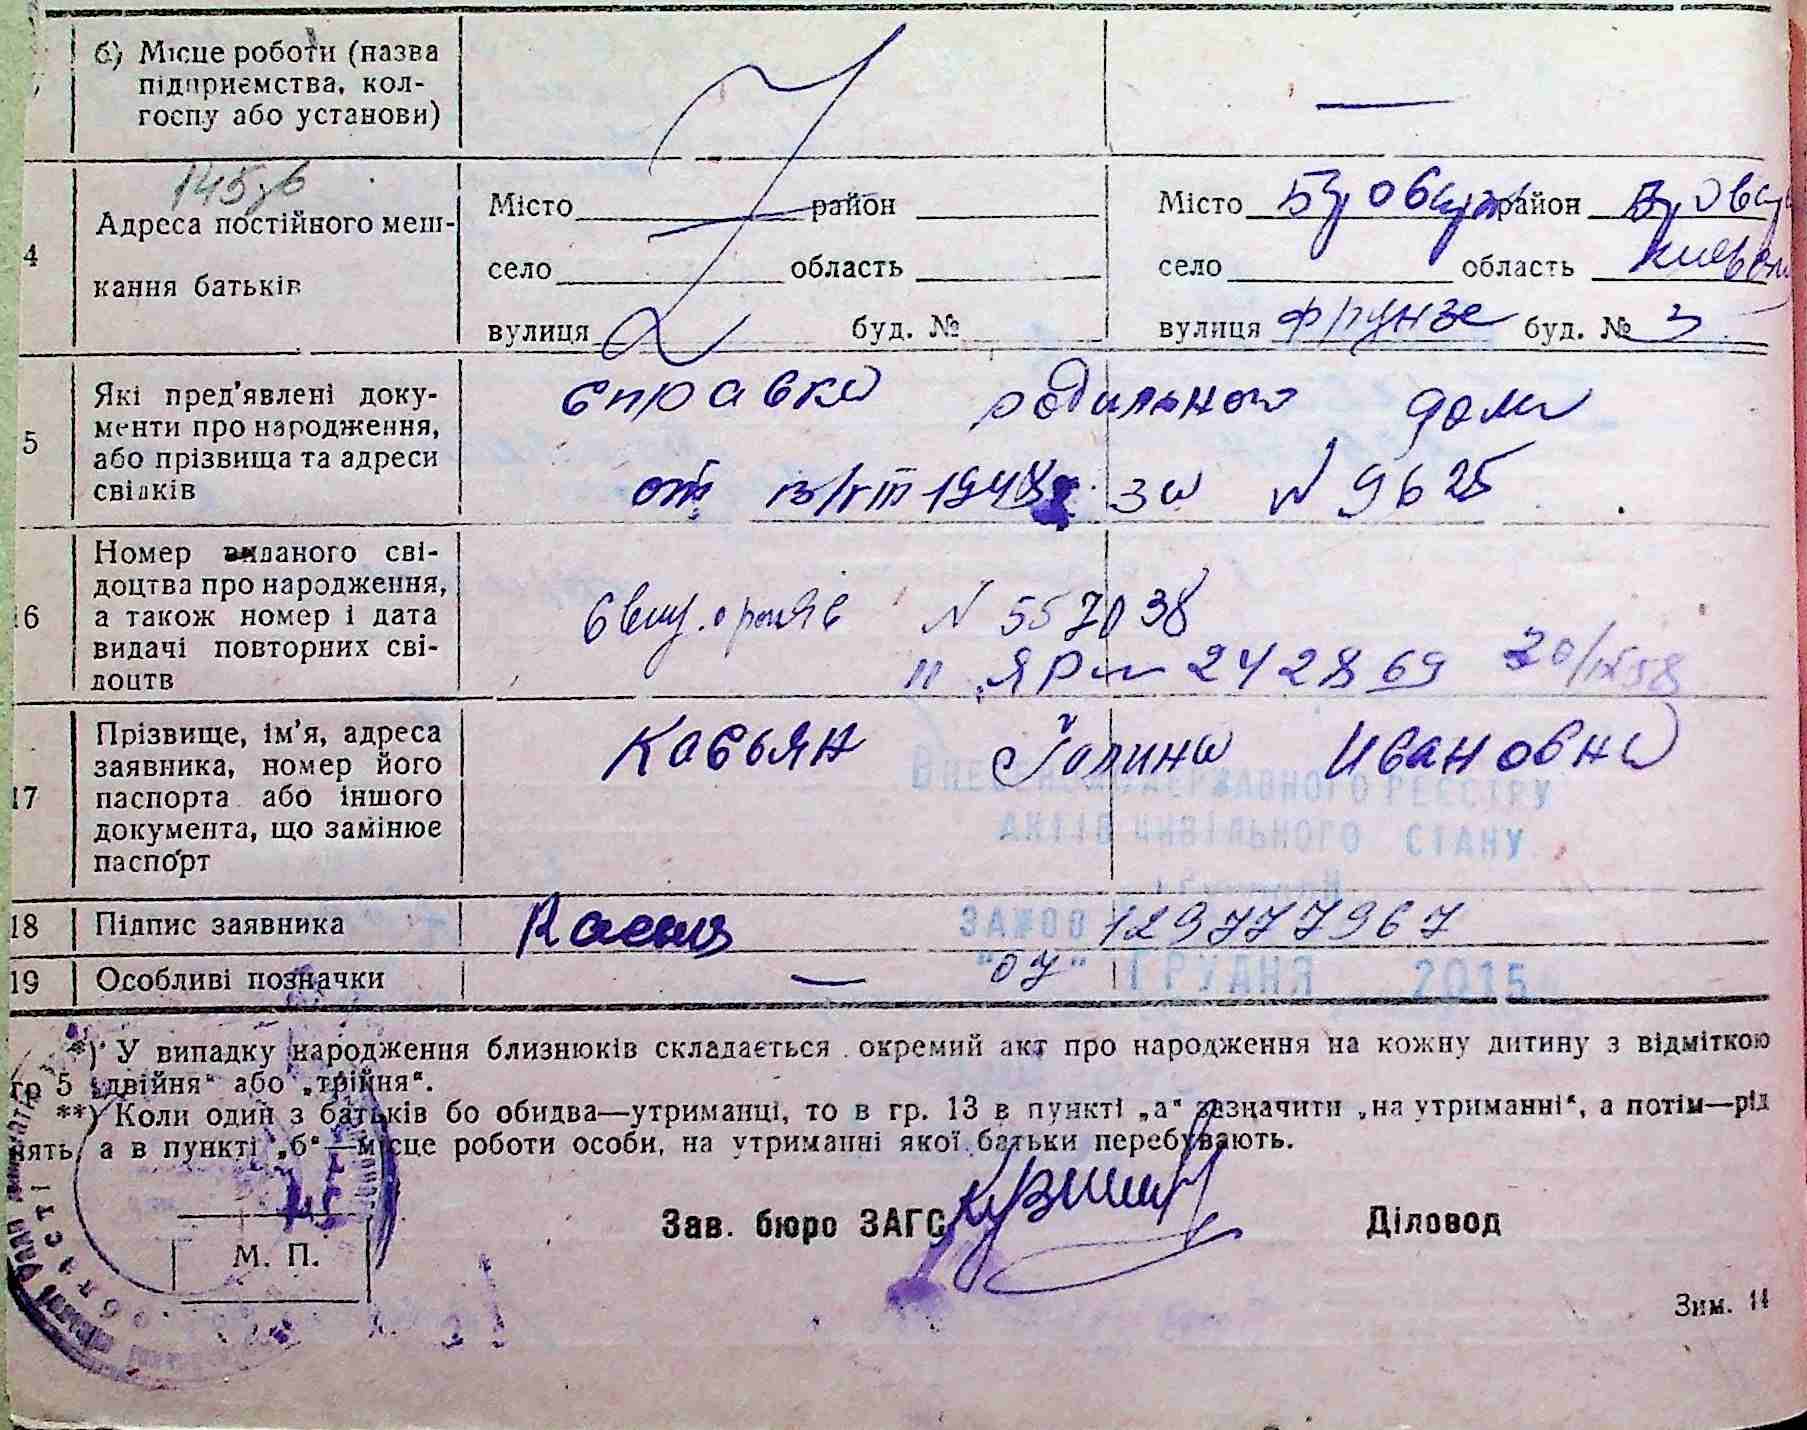 б) Місце роботи (назва
підприємства, кол-
госпу або установи)
—
4
Адреса постійного меш-
кання батьків
Місто район
село область
вулиця буд. №
Місто район
село область
вулиця Фрунзе буд. № 3
5
Які пред'явлені доку-
менти про народження,
або прізвища та адреси
свідків
справка родильного дома
от 1948 за N 9625
6
Номер виданого сві-
доцтва про народження,
а також номер і дата
видачі повторних сві-
доцтв
N 557038
" ЯР 242869 20/IX 58
17
Прізвище, ім'я, адреса
заявника, номер його
паспорта або іншого
документа, що замінює
паспорт
Касьян Галина Ивановна
ВНЕСЕНО ДО ДЕРЖАВНОГО РЕЄСТРУ
АКТІВ ЦИВІЛЬНОГО СТАНУ
18
Підпис заявника
129777967
19
Особливі позначки
—
"07" ГРУДНЯ 2015
*) У випадку народження близнюків складається окремий акт про народження на кожну дитину з відміткою
гр 5 „двійня“ або „трійня“.
**) Коли один з батьків бо обидва—утриманці, то в гр. 13 в пункті „а“ зазначити „на утриманні“, а потім—рід
нять, а в пункті „б“—місце роботи особи, на утриманні якої батьки перебувають.
Зав. бюро ЗАГС
Діловод
М. П.
Зим. 14